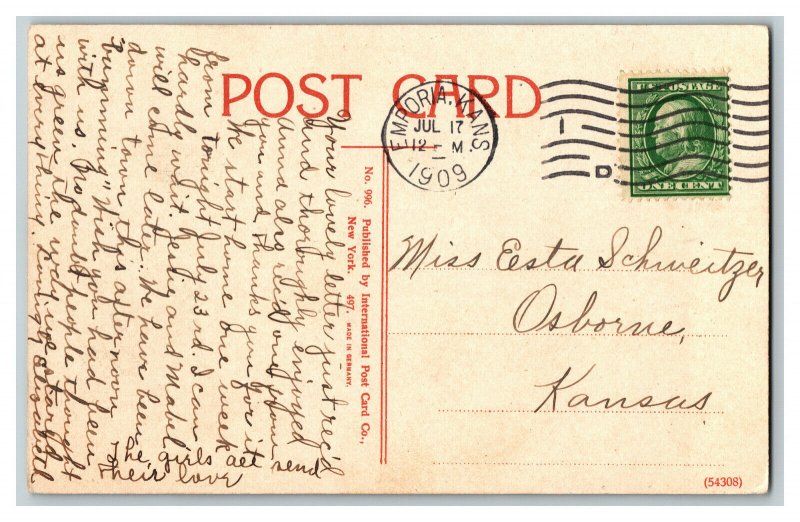 POST CARD
EMPORIA, KANS
JUL 17
12 - M
1909
1
D
U.S. POSTAGE
ONE CENT
Miss Esta Schweitzer
Osborne,
Kansas
No. 996. Published by International Post Card Co.,
New York. 497. MADE IN GERMANY.
Your lovely letter just rec'd
and thoroughly enjoyed
Anna also read one from
you and thanks you for it
We start home one week
from tonight July 23rd. I can
hardly wait. and Mabel
will come later. We have been
down town this afternoon
"bumming" Wish you had been
with us. No doubt people thought
us green, the way we stared
at everything.
The girls all send
their love
(54308)